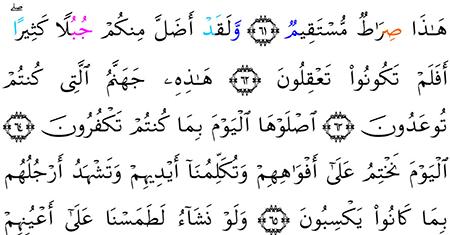 هَـٰذَا صِرَٰطٌ مُّسْتَقِيمٌ ۝٦١ وَلَقَدْ أَضَلَّ مِنكُمْ جُبُلًا كَثِيرًا ۖ
أَفَلَمْ تَكُونُوا۟ تَعْقِلُونَ ۝٦٢ هَـٰذِهِۦ جَهَنَّمُ ٱلَّتِى كُنتُمْ
تُوعَدُونَ ۝٦٣ ٱصْلَوْهَا ٱلْيَوْمَ بِمَا كُنتُمْ تَكْفُرُونَ ۝٦٤
ٱلْيَوْمَ نَخْتِمُ عَلَىٰٓ أَفْوَٰهِهِمْ وَتُكَلِّمُنَآ أَيْدِيهِمْ وَتَشْهَدُ أَرْجُلُهُم
بِمَا كَانُوا۟ يَكْسِبُونَ ۝٦٥ وَلَوْ نَشَآءُ لَطَمَسْنَا عَلَىٰٓ أَعْيُنِهِمْ